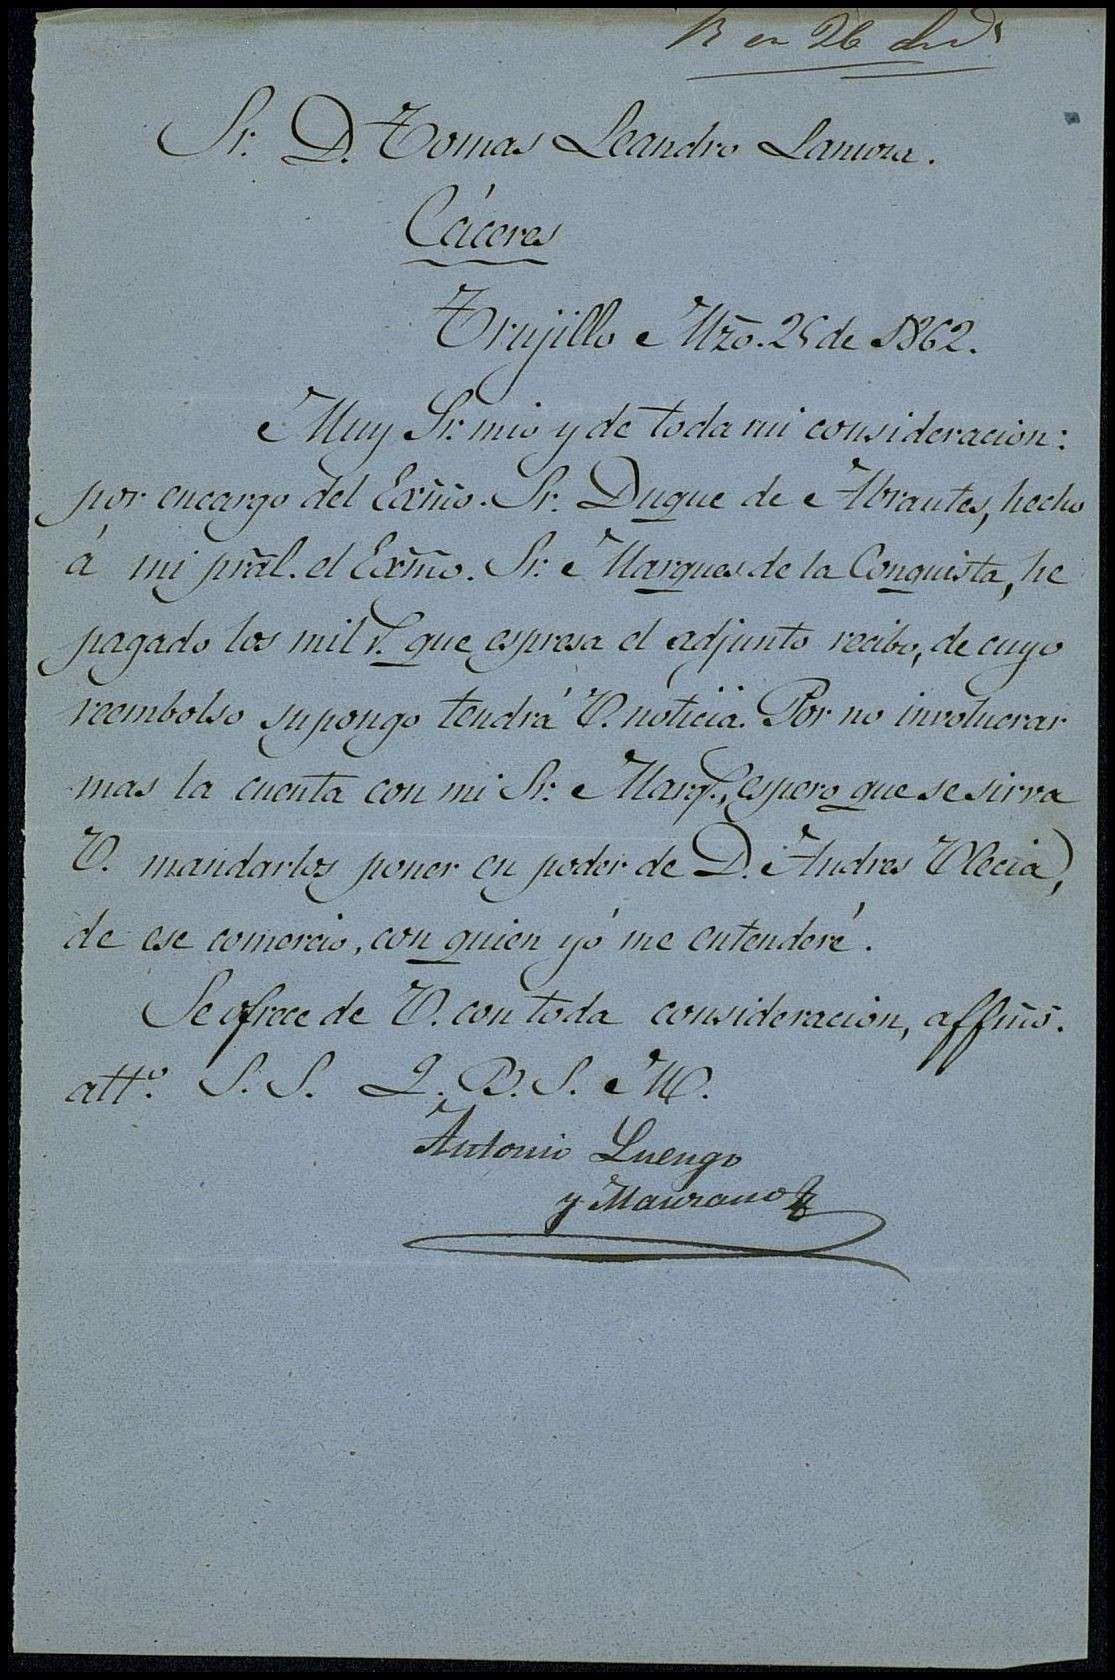 R en 26 dho
Sr. D. Tomas Leandro Lamora.
Cáceres
Trujillo Mzo. 25 de 1862.
Muy Sr. mio y de toda mi consideracion:
por encargo del Exmo. Sr. Duque de Abrantes, hecho
á mi pral. el Exmo. Sr. Marques de la Conquista, he
pagado los mil r.s que espresa el adjunto recibo, de cuyo
reembolso supongo tendrá V. noticia. Por no involucrar
mas la cuenta con mi Sr. Marqs., espero que se sirva
V. mandarlos poner en poder de D. Andres Ulecia,
de ese comercio, con quien yó me entenderé.
Se ofrece de V. con toda consideracion, affmo.
atto. S. S. Q. B. S. M.
Antonio Luengo
y